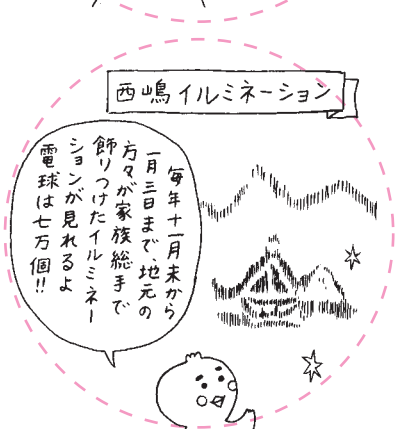 西嶋イルミネーション
毎年十一月末から
一月三日まで、地元の
方々が家族総手で
飾りつけたイルミネー
ションが見れるよ
電球は七万個!!